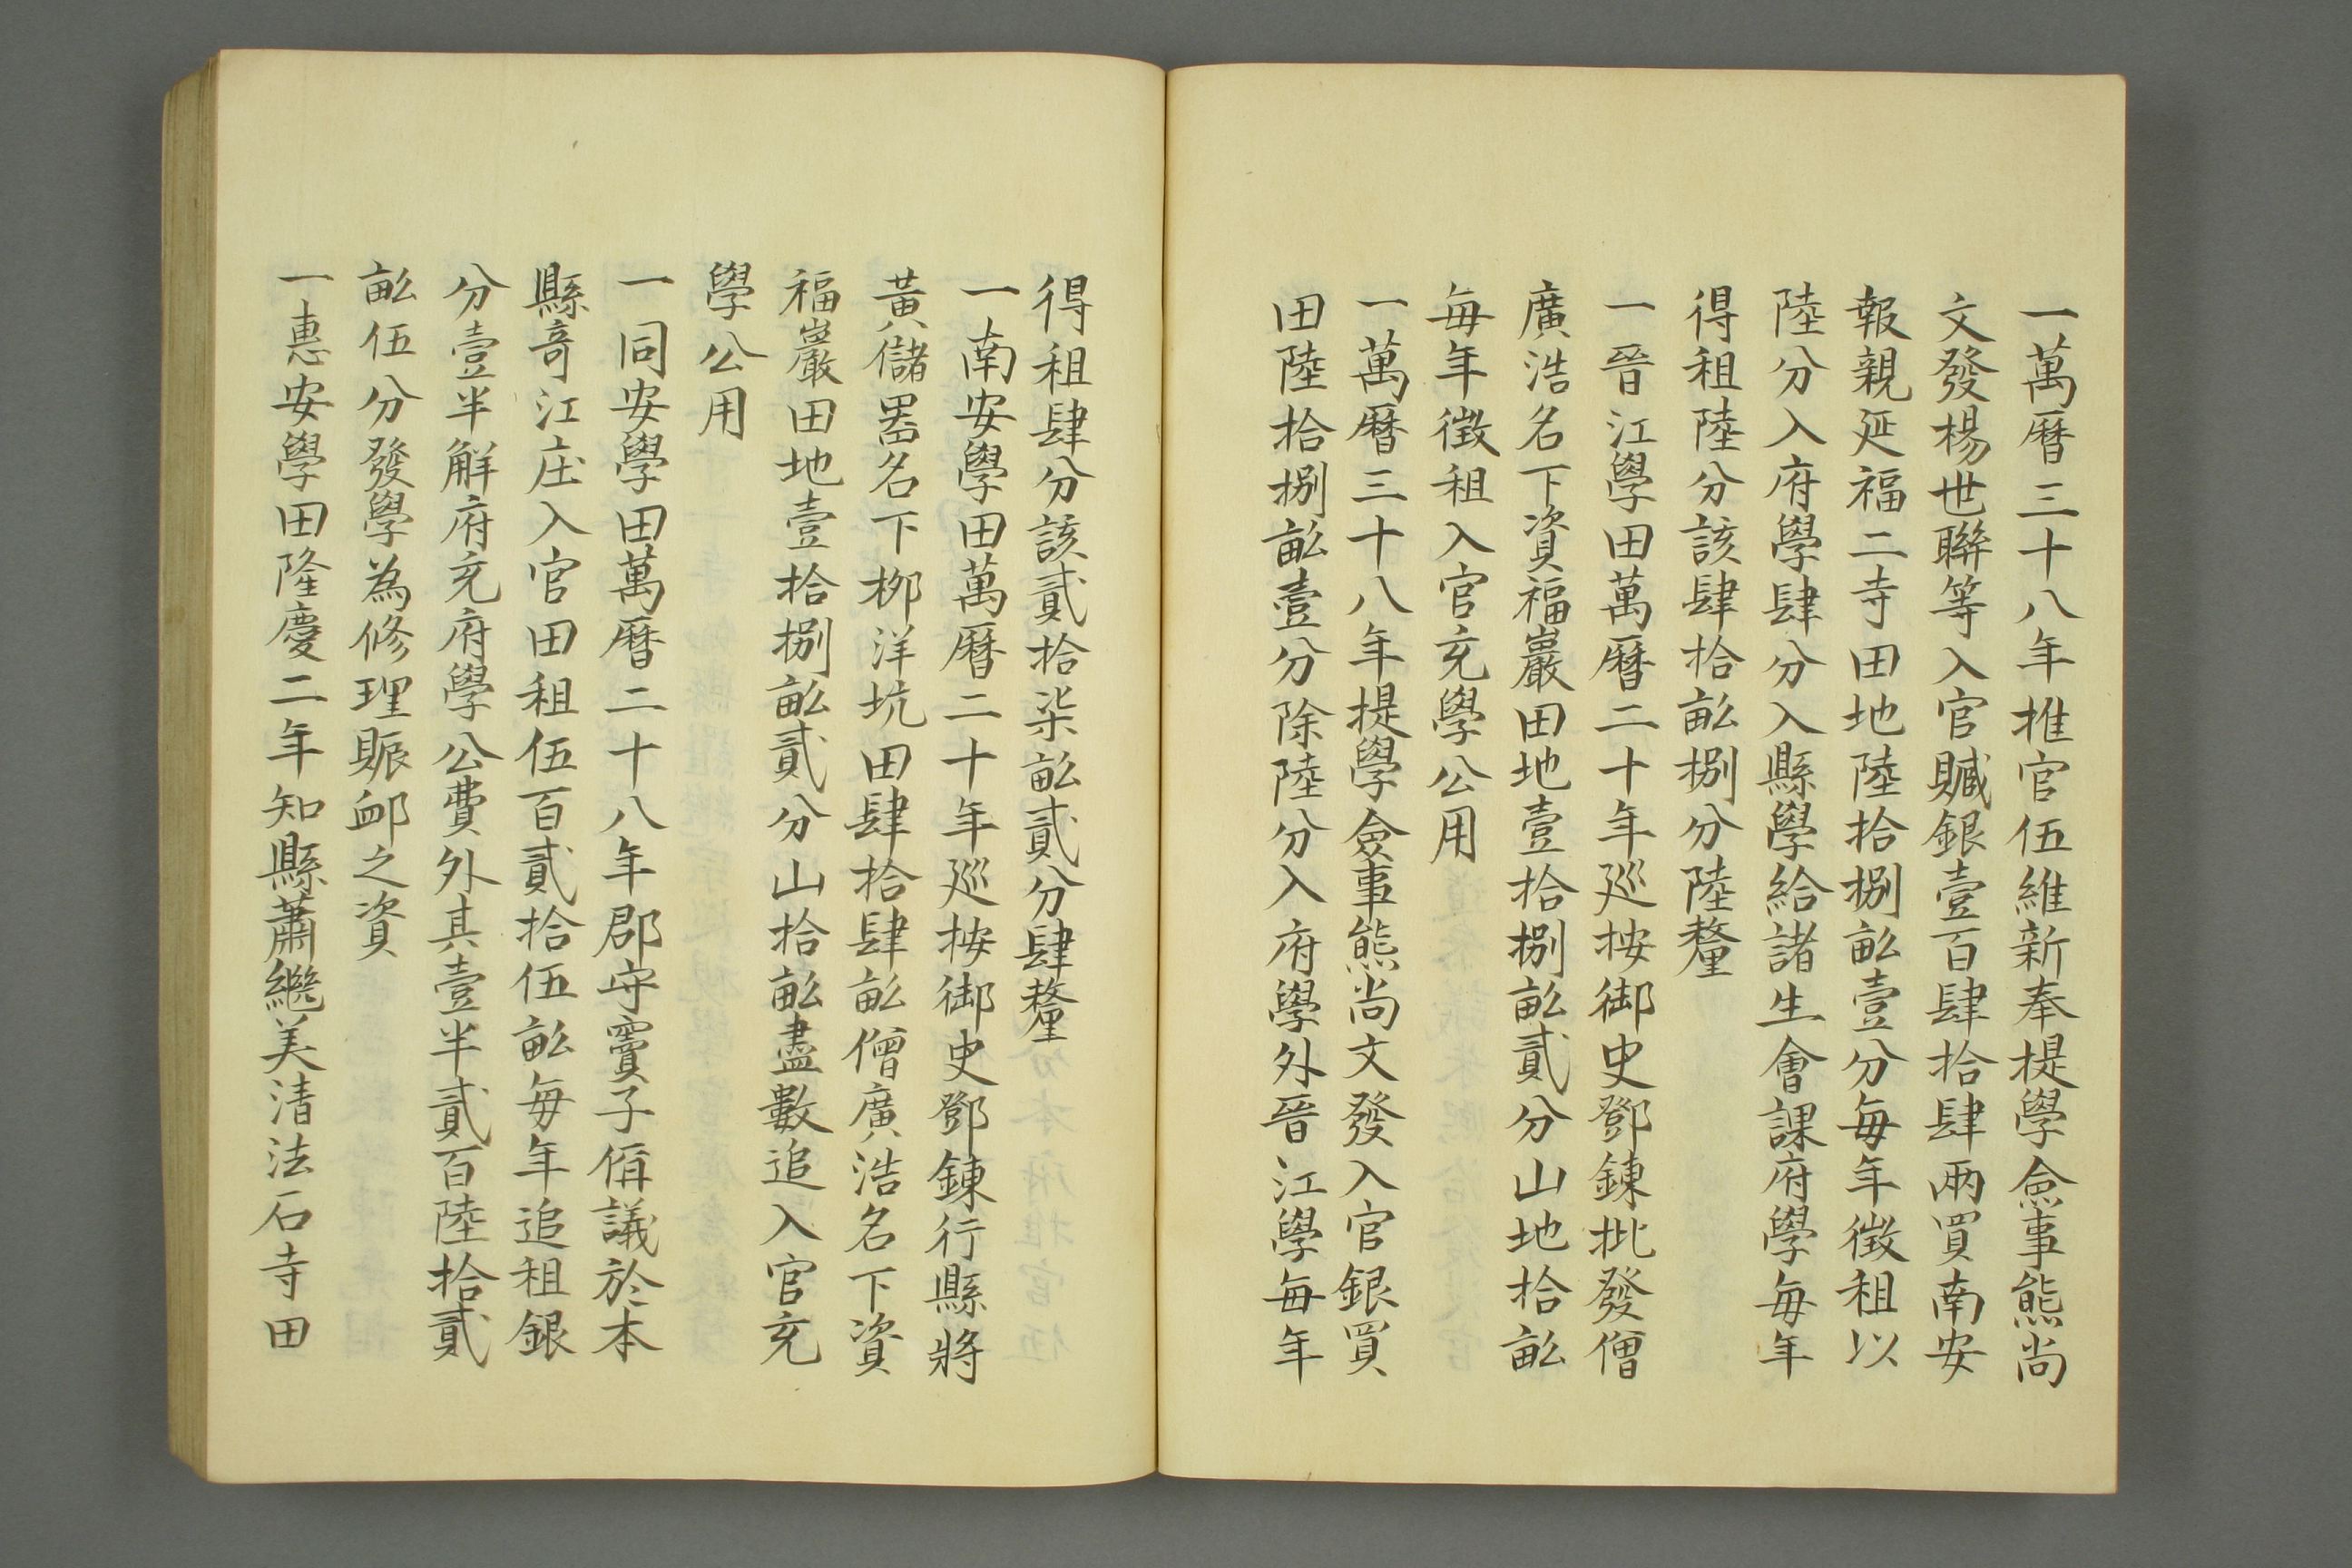 一萬曆三十八年推官伍維新奉提學僉事熊尚
文發楊世聯等入官贓銀壹百肆拾肆兩買南安
報親延福二寺田地陸拾捌畝壹分每年徵租以
陸分入府學肆分入縣學給諸生會課府學每年
得租陸分該肆拾畝捌分陸釐
一晉江學田萬曆二十年廵按御史鄧鍊批發僧
廣浩名下資福巖田地壹拾捌畝貳分山地拾畝
每年徵租入官充學公用
一萬曆三十八年提學僉事熊尚文發入官銀買
田陸拾捌畝壹分除陸分入府學外晉江學每年
得租肆分該貳拾柒畝貳分肆釐
一南安學田萬曆二十年廵按御史鄧鍊行縣將
黃儲器名下栁洋坑田肆拾肆畝僧廣浩名下資
福巖田地壹拾捌畝貳分山拾畝盡數追入官充
學公用
一同安學田萬曆二十八年郡守竇子偁議於本
縣奇江庄入官田租伍百貳拾伍畝每年追租銀
分壹半解府充府學公費外其壹半貳百陸拾貳
畝伍分發學為修理賑卹之資
一惠安學田隆慶二年知縣蕭繼美清法石寺田